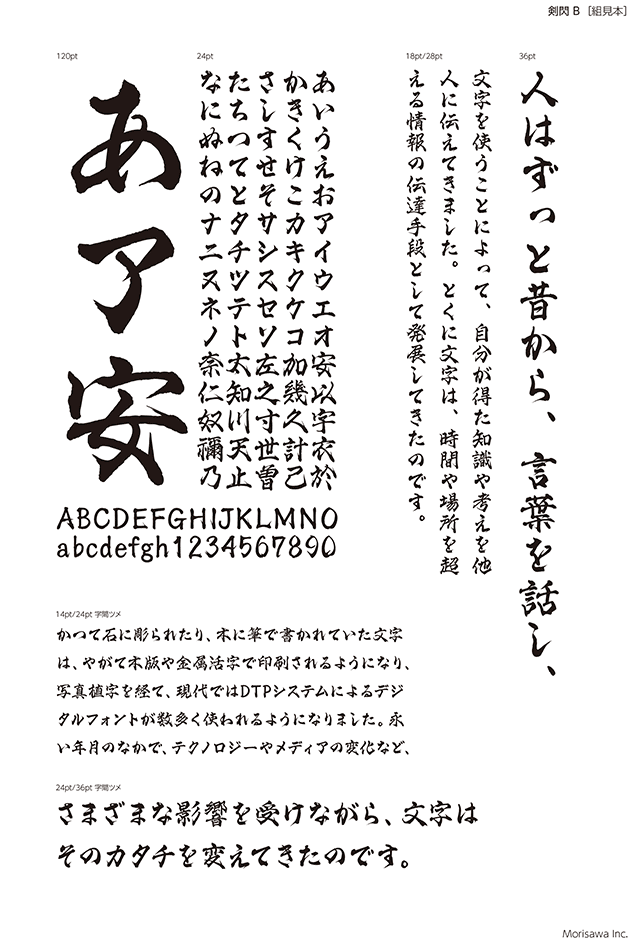 剣閃 B ［組見本］
36pt
人はずっと昔から、言葉を話し、
18pt/28pt
文字を使うことによって、自分が得た知識や考えを他
人に伝えてきました。とくに文字は、時間や場所を超
える情報の伝達手段として発展してきたのです。
24pt
あいうえおアイウエオ安以宇衣於
かきくけこカキクケコ加幾久計己
さしすせそサシスセソ左之寸世曽
たちつてとタチツテト太知川天止
なにぬねのナニヌネノ奈仁奴禰乃
120pt
あア安
ABCDEFGHIJKLMNO
abcdefgh1234567890
14pt/24pt 字間ツメ
かつて石に彫られたり、木に筆で書かれていた文字
は、やがて木版や金属活字で印刷されるようになり、
写真植字を経て、現代ではDTPシステムによるデジ
タルフォントが数多く使われるようになりました。永
い年月のなかで、テクノロジーやメディアの変化など、
24pt/36pt 字間ツメ
さまざまな影響を受けながら、文字は
そのカタチを変えてきたのです。
Morisawa Inc.